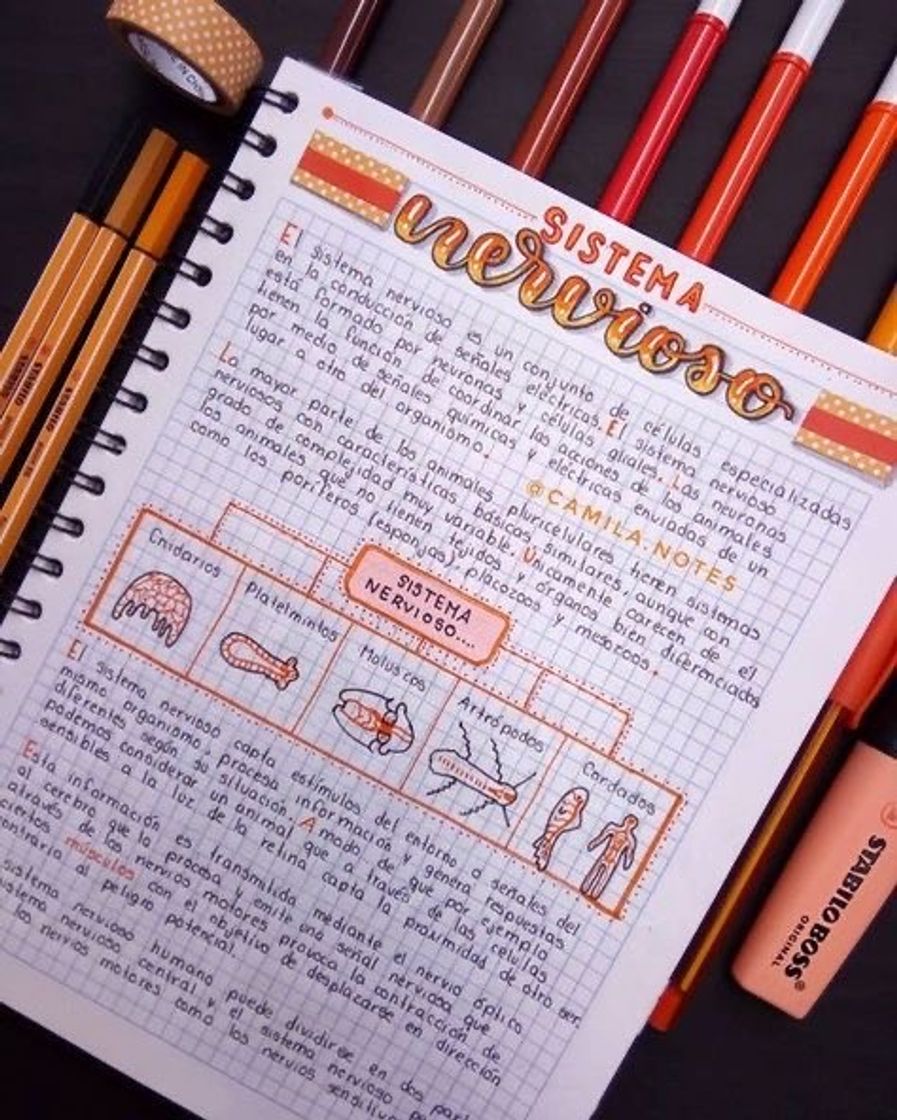 SISTEMA
nervioso
El sistema nervioso es un conjunto de células especializadas
en la conducción de señales eléctricas. El sistema nervioso
está formado por neuronas y células gliales. Las neuronas
tienen la función de coordinar las acciones de los animales
por medio de señales químicas y eléctricas enviadas de un
lugar a otro del organismo.
@CAMILA.NOTES
La mayor parte de los animales pluricelulares tienen sistemas
nerviosos con características básicas similares, aunque con
grado de complejidad muy variable. Únicamente carecen de él
los animales que no tienen tejidos y órganos bien diferenciados
como los poríferos (esponjas), placozoos y mesozoos.
SISTEMA
NERVIOSO....
Cnidarios
Platelmintos
Moluscos
Artrópodos
Cordados
El sistema nervioso capta estímulos del entorno o señales del
mismo organismo, procesa información y genera respuestas
diferentes según su situación. A modo de que por ejemplo
podemos considerar un animal que a través de las células
sensibles a la luz de la retina capta la proximidad de otro ser.
Esta información es transmitida mediante el nervio óptico
al cerebro que la procesa y emite una señal nerviosa que
através de los nervios motores provoca la contracción de
ciertos músculos con el objetivo de desplazarse en dirección
contraria al peligro potencial.
sistema nervioso humano puede dividirse en dos
sistema nervioso central y el sistema nervioso
los nervios motores como los nervios
STABILO BOSS
ORIGINAL
STABILO